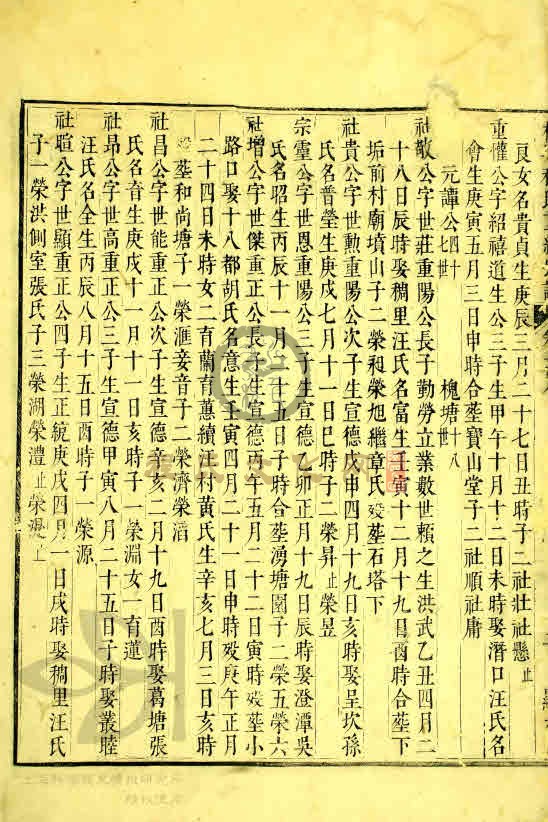 良女名貴貞生庚辰三月二十七日丑時子二社壯社懸止
重懽公字紹禧道生公三子生甲午十月十二日未時娶潛口汪氏名
會生庚寅五月三日申時合塟寶山堂子二社順社庸
元譚公四十七世 槐塘十八世
社敬公字世莊重陽公長子勤勞立業數世賴之生洪武乙丑四月二
十八日辰時娶稠里汪氏名富生壬寅十二月十九日酉時合塟下
垢前村廟墳山子二榮昶榮旭繼章氏歿塟石塔下
社貴公字世勲重陽公次子生宣德戊申四月十九日亥時娶呈坎孫
氏名普瑩生庚戌七月十一日巳時子二榮昇止榮昱
宗靈公字世恩重陽公三子生宣德乙卯正月十九日辰時娶澄潭吳
氏名昭生丙辰十一月二十五日子時合塟湧塘園子二榮五榮六
社增公字世傑重正公長子生宣德丙午五月二十二日寅時歿塟小
路口娶十八都胡氏名意生壬寅四月二十一日申時歿庚午正月
二十四日未時女二育蘭育蕙續汪村黃氏生辛亥七月三日亥時
歿塟和尚塘子一榮滙妾音子二榮濟榮滔
社昌公字世能重正公次子生宣德辛亥二月十九日酉時娶葛塘張
氏名音生庚戌十一月十一日亥時子一榮淵女一育蓮
社昂公字世高重正公三子生宣德甲寅八月二十五日子時娶叢睦
汪氏名全生丙辰八月十五日酉時子一榮源
社暄公字世顯重正公四子生正統庚戌四月一日戌時娶稠里汪氏
子一榮洪側室張氏子三榮湖榮澧止榮混止